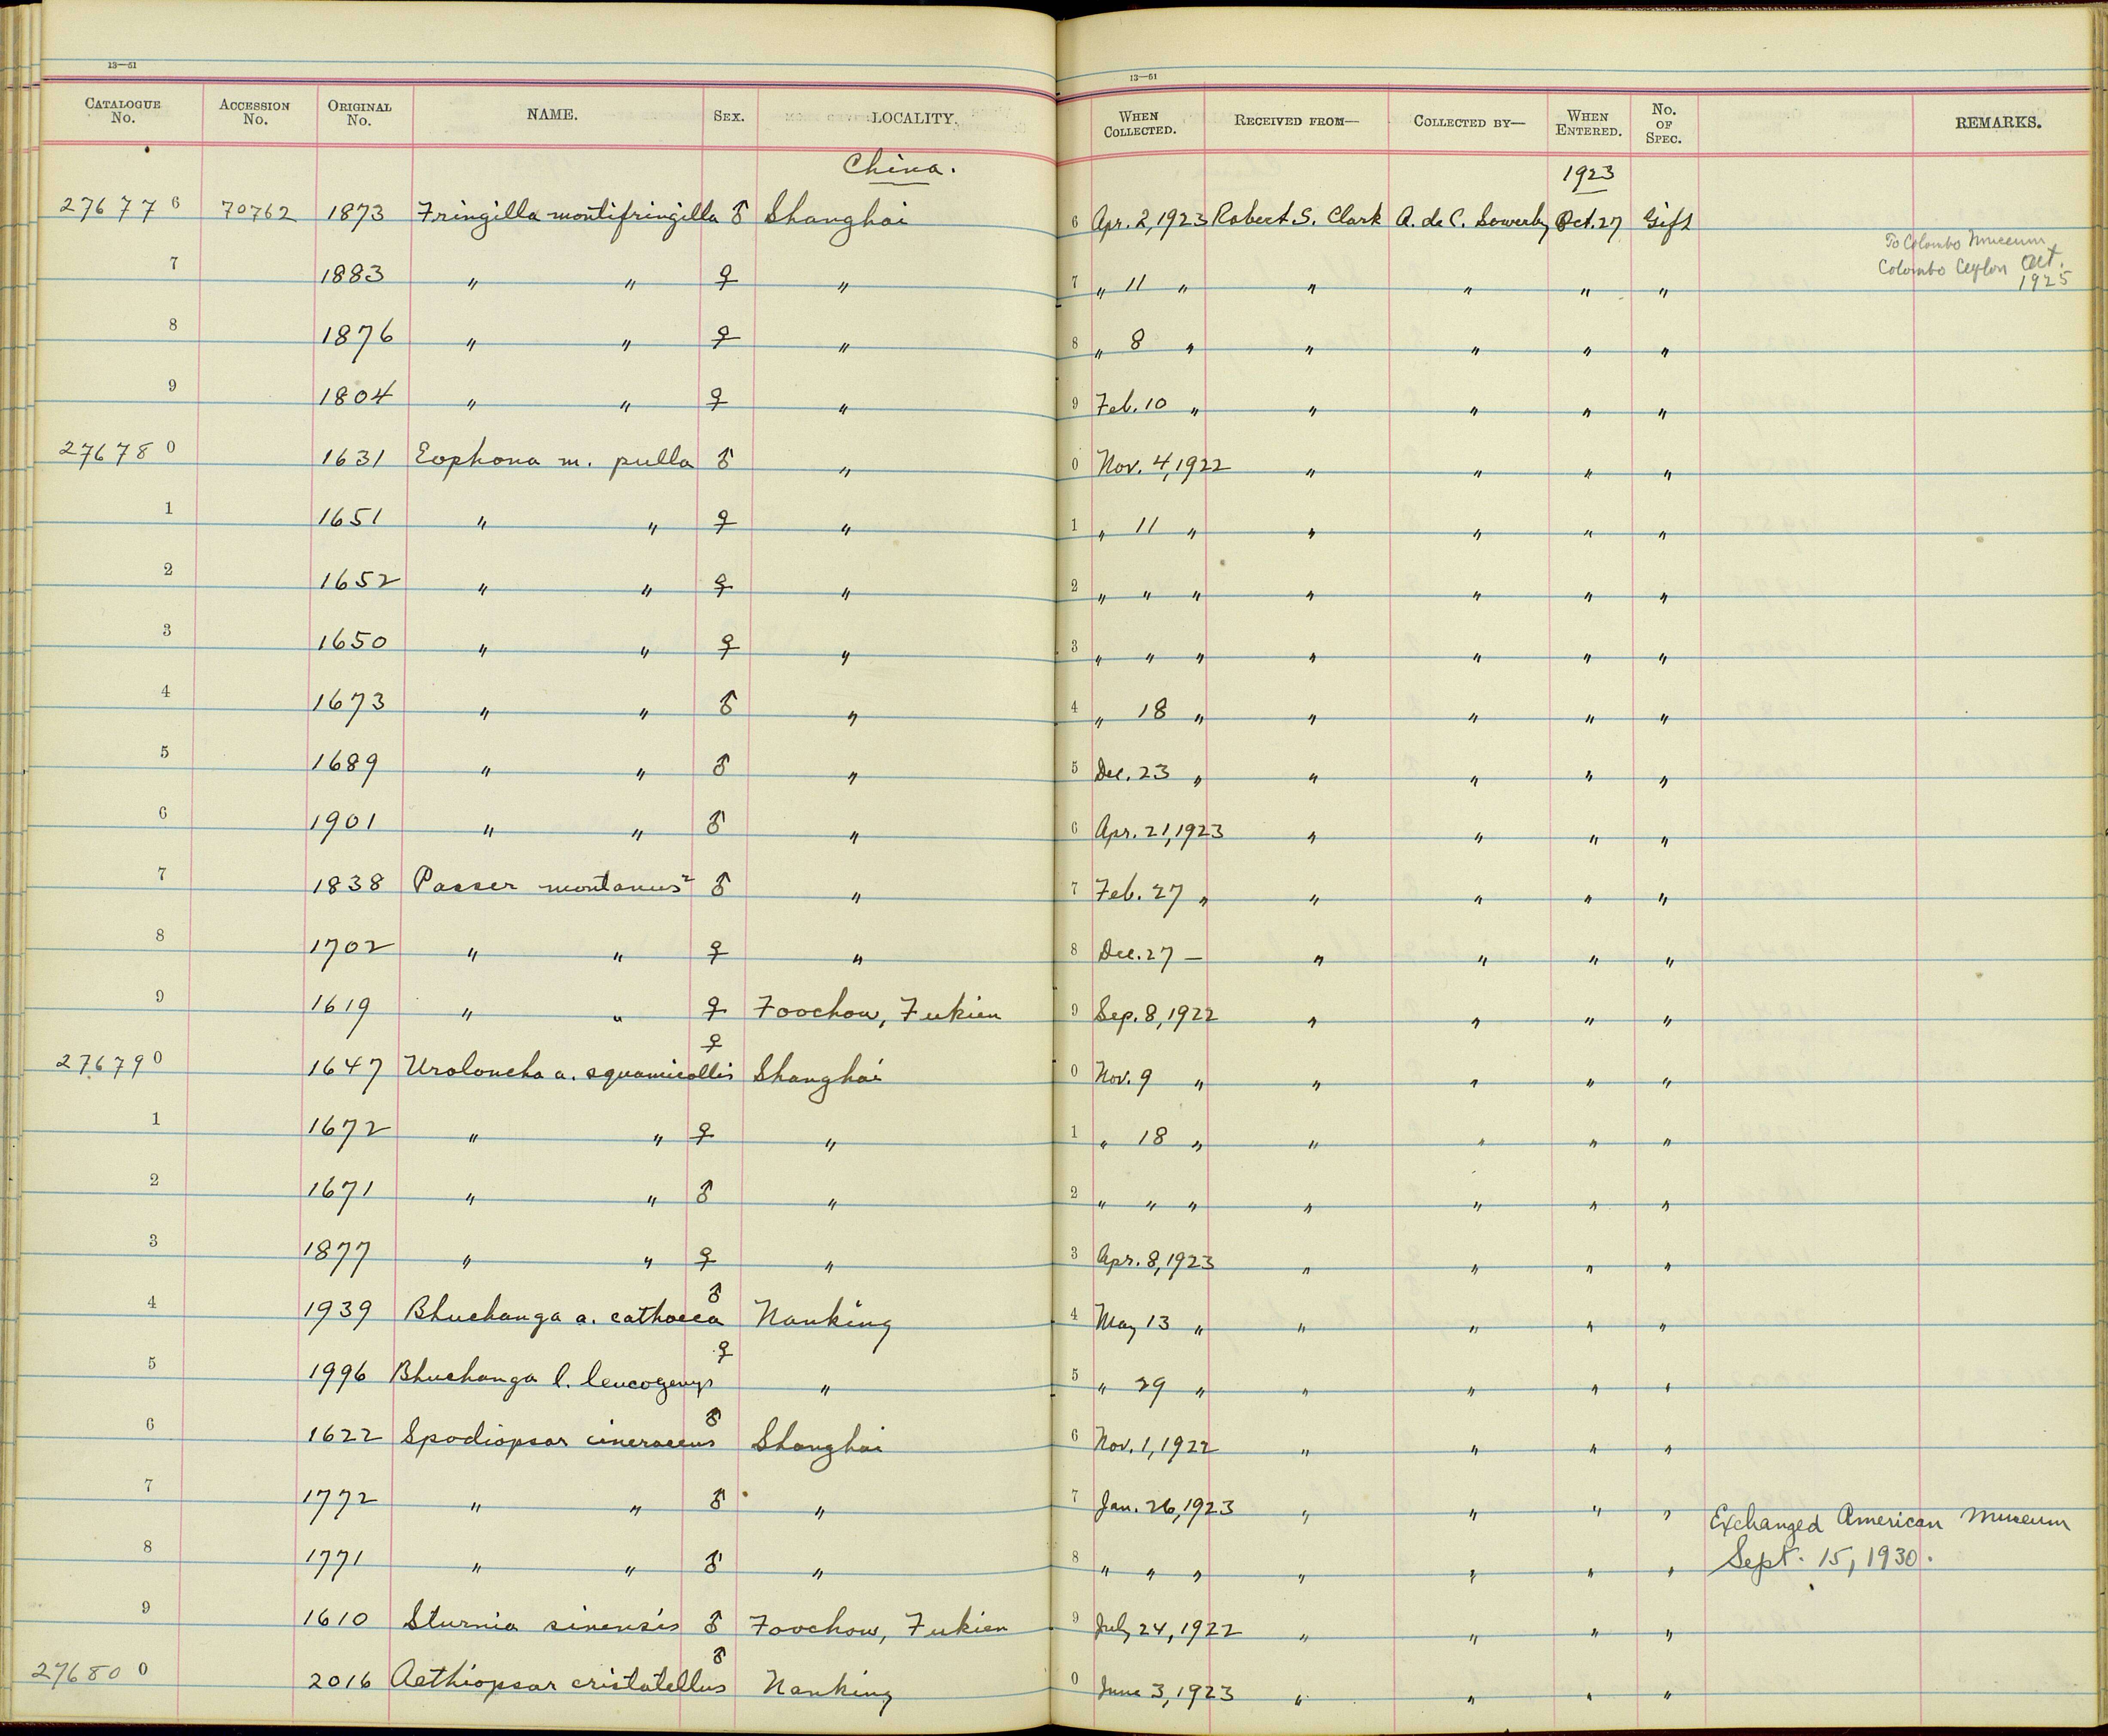 13—51
13—51
CATALOGUE No. ACCESSION No. ORIGINAL No. NAME. SEX. LOCALITY. WHEN COLLECTED. RECEIVED FROM— COLLECTED BY— WHEN ENTERED. No. OF SPEC. REMARKS.
China. 1923
276776 70762 1873 Fringilla montifringilla ♂ Shanghai 6 Apr. 2, 1923 Robert S. Clark A. de C. Sowerby Oct. 27 Gift
To Colombo Museum
Colombo Ceylon Oct.
1925
7 1883 " " ♀ " 7 " 11 " " " " "
8 1876 " " ♀ " 8 " 8 " " " " "
9 1804 " " ♀ " 9 Feb. 10 " " " " "
276780 1631 Eophona m. pulla ♂ " 0 Nov. 4, 1922 " " " "
1 1651 " " ♀ " 1 " 11 " " " " "
2 1652 " " ♀ " 2 " " " " " " "
3 1650 " " ♀ " 3 " " " " " " "
4 1673 " " ♂ " 4 " 18 " " " " "
5 1689 " " ♂ " 5 Dec. 23 " " " " "
6 1901 " " ♂ " 6 Apr. 21, 1923 " " " "
7 1838 Passer montanus ♂ " 7 Feb. 27 " " " " "
8 1702 " " ♀ " 8 Dec. 27 — " " " "
9 1619 " " ♀ Foochow, Fukien 9 Sep. 8, 1922 " " " "
276790 1647 Uroloncha a. squamicollis ♀ Shanghai 0 Nov. 9 " " " " "
1 1672 " " ♀ " 1 " 18 " " " " "
2 1671 " " ♂ " 2 " " " " " " "
3 1877 " " ♀ " 3 Apr. 8, 1923 " " " "
4 1939 Bhuchanga a. cathoeca ♂ Nanking 4 May 13 " " " " "
5 1996 Bhuchanga l. leucogenys ♀ " 5 " 29 " " " " "
6 1622 Spodiopsar cineraceus ♂ Shanghai 6 Nov. 1, 1922 " " " "
7 1772 " " ♂ " 7 Jan. 26, 1923 " " " "
Exchanged American Museum
8 1771 " " ♂ " 8 " " " " " " " Sept. 15, 1930.
9 1610 Sturnia sinensis ♂ Foochow, Fukien 9 July 24, 1922 " " " "
276800 2016 Aethiopsar cristatellus ♂ Nanking 0 June 3, 1923 " " " "